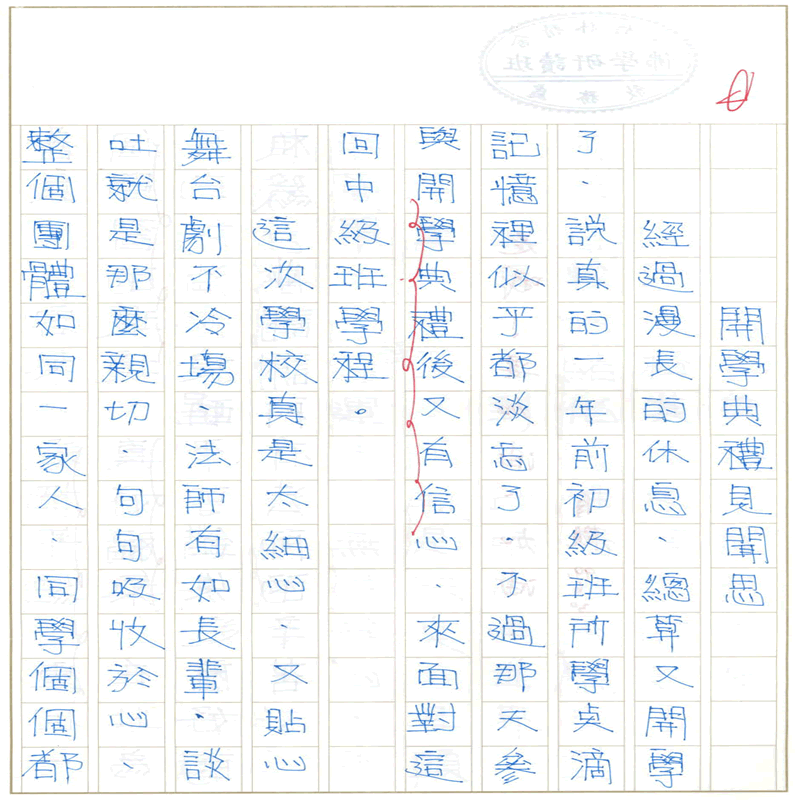 佛學研讀班
開學典禮見聞思
經過漫長的休息、總算又開學
了、說真的一年前初級班所學奌滴
記憶裡似乎都淡忘了、不過那天參
與開學典禮後又有信心、來面對這
回中級班學程。
這次學校真是太細心、又貼心
舞台劇不冷場、法師有如長輩、談
吐就是那麼親切、句句吸收於心、
整個團體如同一家人、同學個個都